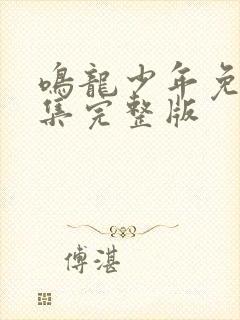 鳴龍少年免
集完整版
傅湛